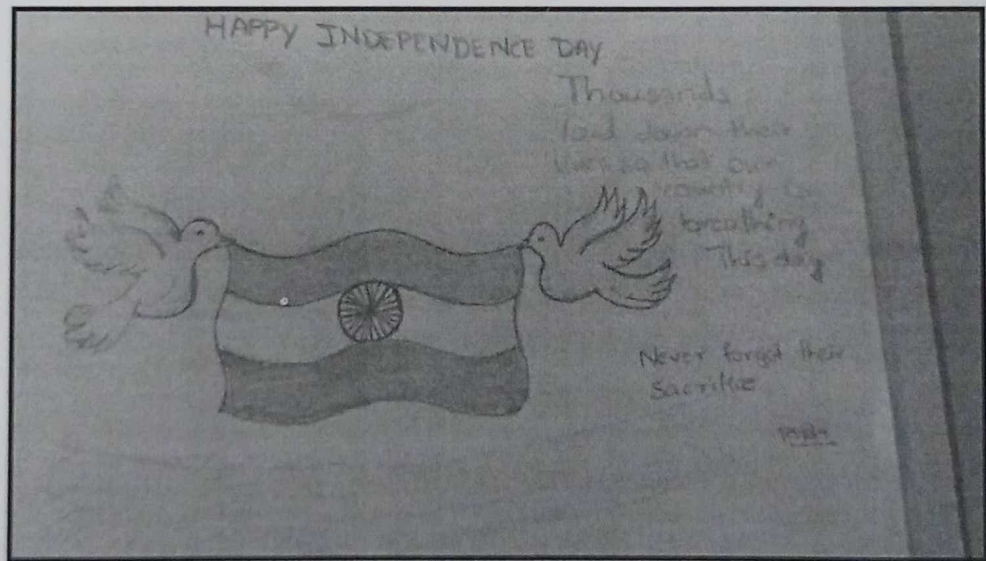 HAPPY INDEPENDENCE DAY
Thousands
laid down their
lives so that our
country is
breathing
This day
Never forgot their
Sacrifice